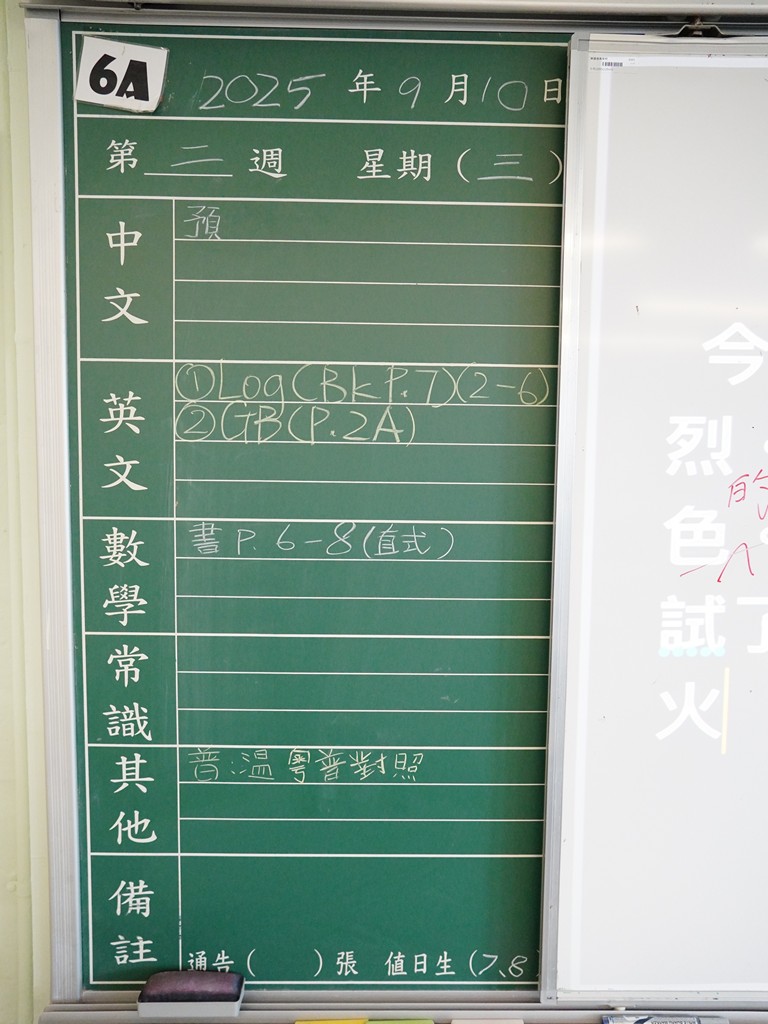 6A
2025 年 9 月 10 日
第 二 週 星期 (三)
中文
預
英文
①Log(Bk P.7)(2-6)
②GB(P.2A)
數學
書 P. 6-8(直式)
常識
其他
普:溫 粵普對照
備註
通告( )張 值日生(7、8
今
烈
的
色
試了
火